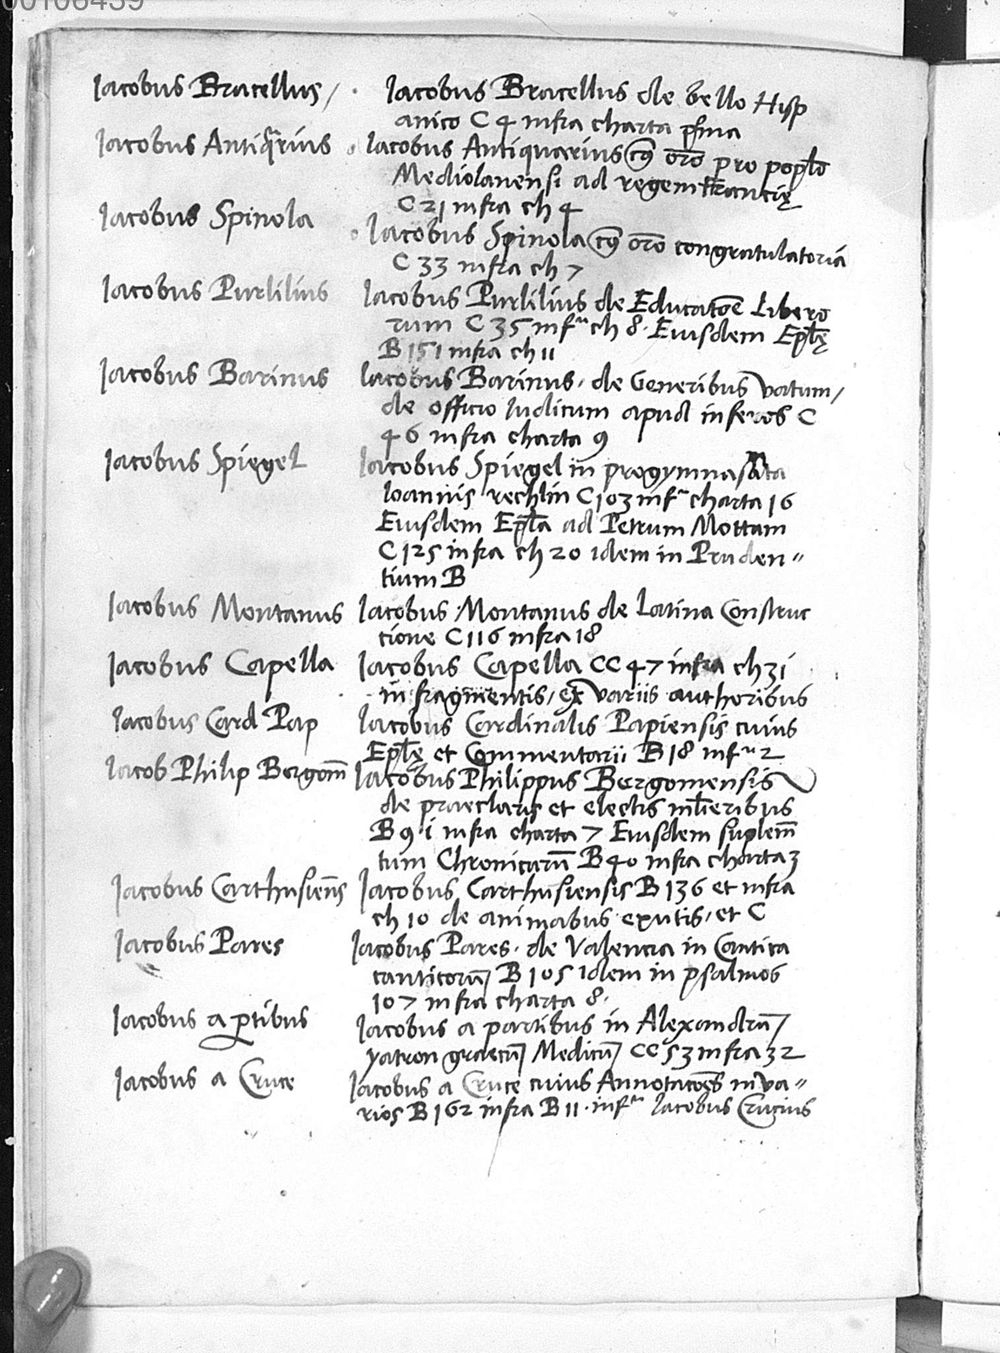 00106439
Iacobus Bracellus / · Iacobus Bracellus de bello Hisp
anico C 4 infra charta p̃ma
Iacobus Antiq̃rius · Iacobus Antiquarius cuius orõ pro poplo
Mediolanensi ad regem Francię
C 21 infra ch 4
Iacobus Spinola · Iacobus Spinola cuius orõ congratulatoria
C 33 infra ch 7
Iacobus Purlilius Iacobus Purlilius de Educatõe Libero
rum C 35 infª ch 8 · Eiusdem Eplę
B 151 infra ch 11
Iacobus Barinus Iacobus Barinus · de Generibus vatum /
de officio Iudicum apud inferos C
46 infra charta 9
Iacobus Spiegel Iacobus Spiegel in progymnasmata
Ioannis rechlin C 103 infª charta 16
Eiusdem Epla ad Petrum Mottam
C 125 infra ch 20 idem in Pruden=
tium B
Iacobus Montanus Iacobus Montanus de Latina Construc
tione C 116 infra 18
Iacobus Capella Iacobus Capella CC 47 infra ch 31
in fragmentis / ex variis authoribus
Iacobus Card Pap Iacobus Cardinalis Papiensis cuius
Eplę et Commentarii B 18 infª 2
Iacob Philip Bergom̃ Iacobus Philippus Bergomensis
de praeclaris et electis mulieribus
B 9 · i infra charta 7 Eiusdem suplem̃
tum Chronicarũ B 40 infra charta 3
Iacobus Carthusieñs Iacobus Carthusiensis B 136 et infra
ch 10 de animabus exutis · et C
Iacobus Pares Iacobus Pares · de Valencia in Cantica
canticorũ B 105 idem in psalmos
107 infra charta 8 ·
Iacobus a ꝑtibus Iacobus a partibus in Alexandrũ
yatron graecũ Medicũ CC 53 infra 32
Iacobus a Cruce Iacobus a Cruce cuius Annotatões in va=
rios B 162 infra B 11 · infª Iacobus Crucius